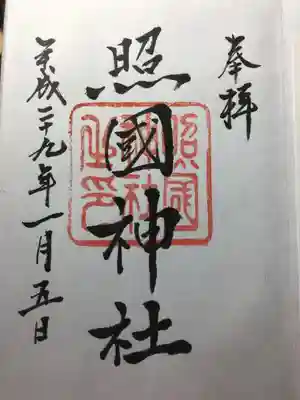 奉拝
照國神社
平成二十九年一月五日
照國神社之印